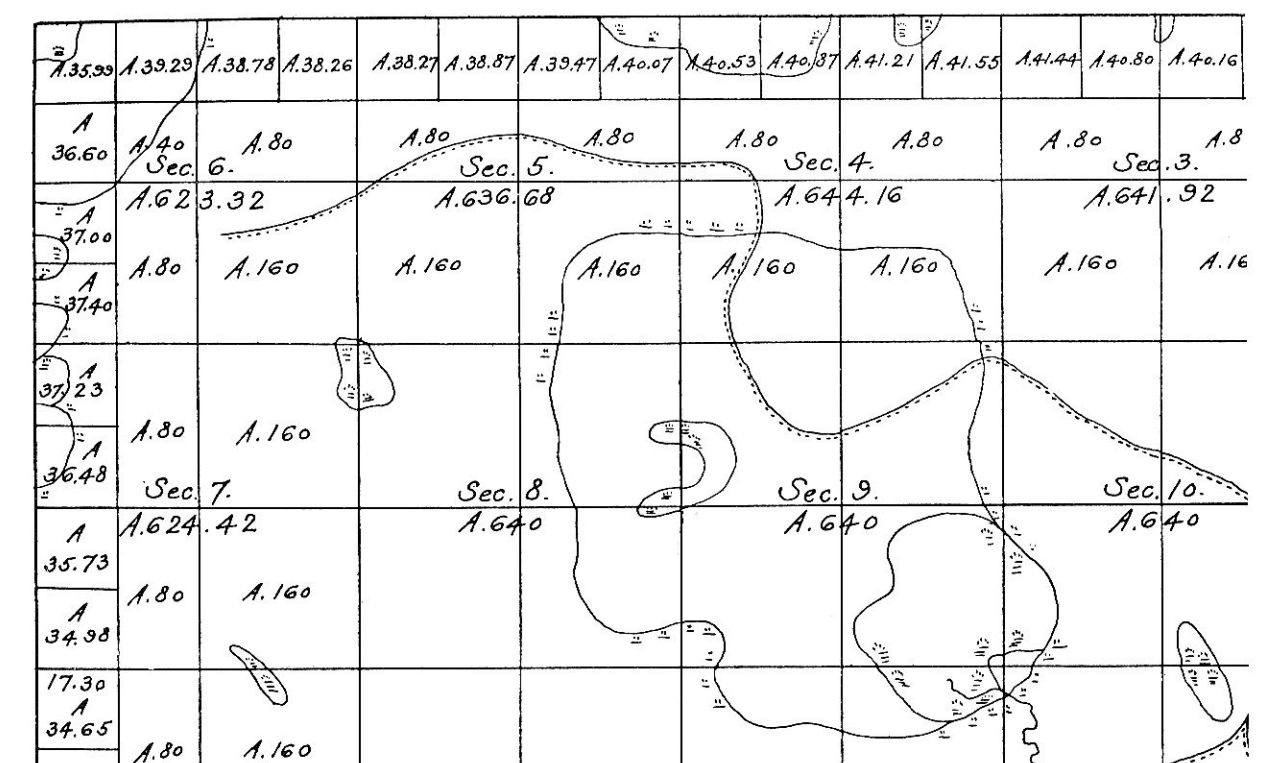 A.35.99 A.39.29 A.38.78 A.38.26 A.38.27 A.38.87 A.39.47 A.40.07 A.40.53 A.40.87 A.41.21 A.41.55 A.41.44 A.40.80 A.40.16
A 36.60 A.40 A.80 A.80 A.80 A.80 A.80 A.80 A.8
Sec. 6. Sec. 5. Sec. 4. Sec. 3.
A.623.32 A.636.68 A.644.16 A.641.92
A
37.00
A.80 A.160 A.160 A.160 A.160 A.160 A.160 A.16
A
37.40
A
37.23
A.80 A.160
A
36.48
Sec. 7. Sec. 8. Sec. 9. Sec. 10.
A.624.42 A.640 A.640 A.640
A
35.73
A.80 A.160
A
34.98
17.30
A
34.65
A.80 A.160